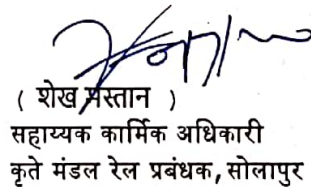 ( शेख मस्तान )
सहाय्यक कार्मिक अधिकारी
कृते मंडल रेल प्रबंधक, सोलापुर